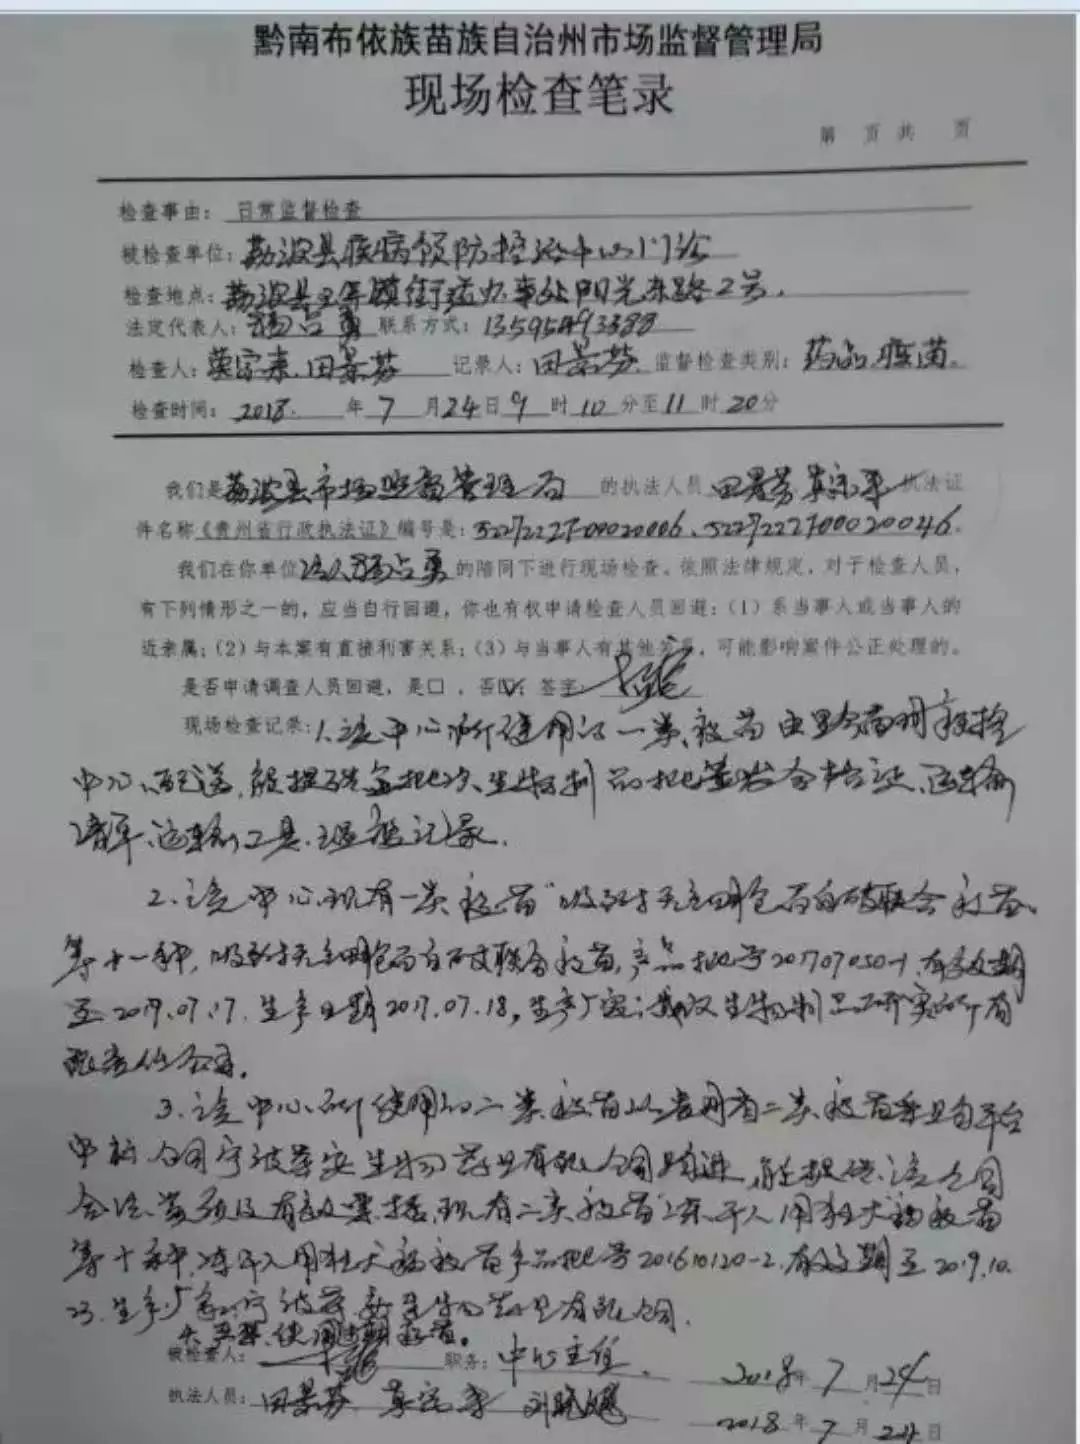 黔南布依族苗族自治州市场监督管理局
现场检查笔录
第 页共 页
检查事由： 日常监督检查
被检查单位：荔波县疾病预防控治中心门诊
检查地点：荔波县玉屏镇街道办事处阳光东路2号.
法定代表人： 占勇 联系方式：13595493388
检查人： 田景芬 记录人：田景芬 监督检查类别：药品.疫苗。
检查时间：2018. 年 7 月24日 9 时 10 分至 11 时 20分
我们是荔波县市场监督管理局 的执法人员 田景芬 执法证
件名称《贵州省行政执法证》编号是：
我们在你单位法人 占勇的陪同下进行现场检查。依照法律规定，对于检查人员，
有下列情形之一的，应当自行回避，你也有权申请检查人员回避：（1）系当事人或当事人的
近亲属；（2）与本案有直接利害关系；（3）与当事人有其他关系，可能影响案件公正处理的。
是否申请调查人员回避，是□ ，否☑；签字：
现场检查记录：1.该中心所使用的一类疫苗由黔南州疾控
中心配送，能提供各批次生物制品批签发合格证、运输
清单、运输工具、温度记录.
2.该中心现有一类疫苗"吸附无细胞百白破联合疫苗、
等十一种，吸附无细胞百白破联合疫苗，产品批号201707050-1，有效期
至2019.07.17.生产日期2017.07.18，生产厂家：武汉生物制品研究所有
限责任公司.
3.该中心所使用的二类疫苗从贵州省二类疫苗采购平台
中标公司宁波荣安生物药业有限公司购进，能提供该公司
合法资质及有效票据，现有二类疫苗"冻干人用狂犬病疫苗
等十种，冻干人用狂犬病疫苗产品批号201610120-2.有效期至2019.10.
23.生产厂家：宁波荣安生物药业有限公司.
4. 使用过期疫苗。
被检查人： 职务：中心主任. 2018年 7 月24日
执法人员：田景芬 2018 年 7 月 24日